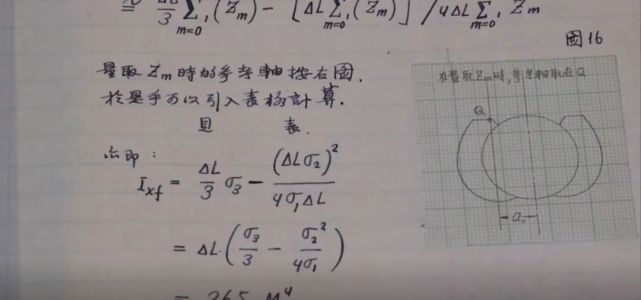 ≅ ΔL/3 Σ_{m=0} (Z_m) − [ΔL Σ_{m=0} (Z_m)] / 4ΔL Σ_{m=0} Z_m
圖16
量取 Zm 時的參考軸按右圖.
於是乎可以引入表格計算.
見 表.
亦即:
I_xf = ΔL/3 σ₃ − (ΔLσ₂)² / 4σ₁ΔL
= ΔL·(σ₃/3 − σ₂²/4σ₁)
= 265 M⁴
在量取Zm時,參考軸取在Q
Q
a